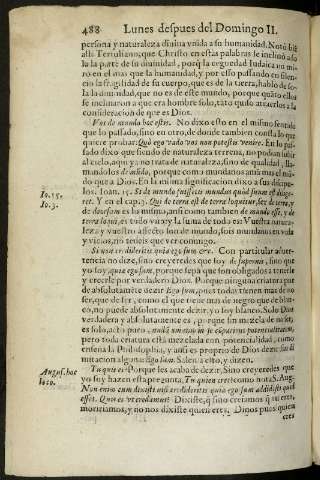 488 Lunes despues del Domingo II.
persona y naturaleza diuina vnida a su humanidad. Notò biẽ
alli Tertuliano, que Christo en estas palabras se inclinò a do
la la parte de su diuinidad, porq̃ la ceguedad Iudaica no mi-
rò en el mas que la humanidad, y por esso passando en silen-
cio la fragilidad de su cuerpo, que es de la tierra, hablo de so-
la la diuinidad, que no es de este mundo, porque quãto ellos
se inclinaron a que era hombre solo, tãto quiso atraerlos a la
consideracion de que es Dios.
Vos de mundo hoc estis. No dixo esto en el mismo sentido
que lo passado, sino en otro, de donde tambien consta lo que
quiere probar: Quò ego vado vos non potestis venire. En lo pas-
sado dixo que siendo de naturaleza terrena, no podian subir
al cielo, aqui ya no trata de naturaleza, sino de qualidad, lla-
mandolos de mũdo, porque como mundanos amauã mas el mũ-
do que a Dios. En la misma significacion dixo a sus dicipu-
los. Ioan. 15. Si de mundo fuissetis mundus quod suum est dilige-
ret. Y en el cap. 3. Qui de terra est de terra loquitur,
Ioan. 15.
Io. 3.
y nos tambien de mundo estis, y de
vicios, no teneis que ver conmigo.
Si non credideritis quia ego sum &c. Con particular aduer-
tencia no dize, sino creyeredes que soy de supernis, sino que
yo soy, quia ego sum, porque sepã que son obligados a tenerle
y creerle por verdadero Dios. Porque ninguna criatura pue
de absolutamẽte dezir Ego sum, pues todas tienen mas de no
ser, que de ser, como el que tiene mas de negro que de blan-
co, no puede absolutamente dezir, yo soy blanco. Solo Dios
verdadera y absolutamente es, porque sin mezcla de no ser,
es solo, acto puro,
porque toda criatura està mezclada con potencialidad, como
enseña la Philosophia, y assi es proprio de Dios dezir sin li-
mitacion alguna: Ego sum. Salen a esto, y dizen.
Tu quis es? Porque les acabo de dezir, Sino creyeredes que
yo soy hazen esta pregunta, Tu quien eres? como nota S. Aug.
August. hoc
loco.
Non enim cum dixisset nisi credideritis quia ego sum addidit quid
esset. Quis es vt credamus? Dixiste, q̃ sino creiamos q̃ tu eres,
moririamos, y no nos dixiste quien eres. Dinos pues quien
eres